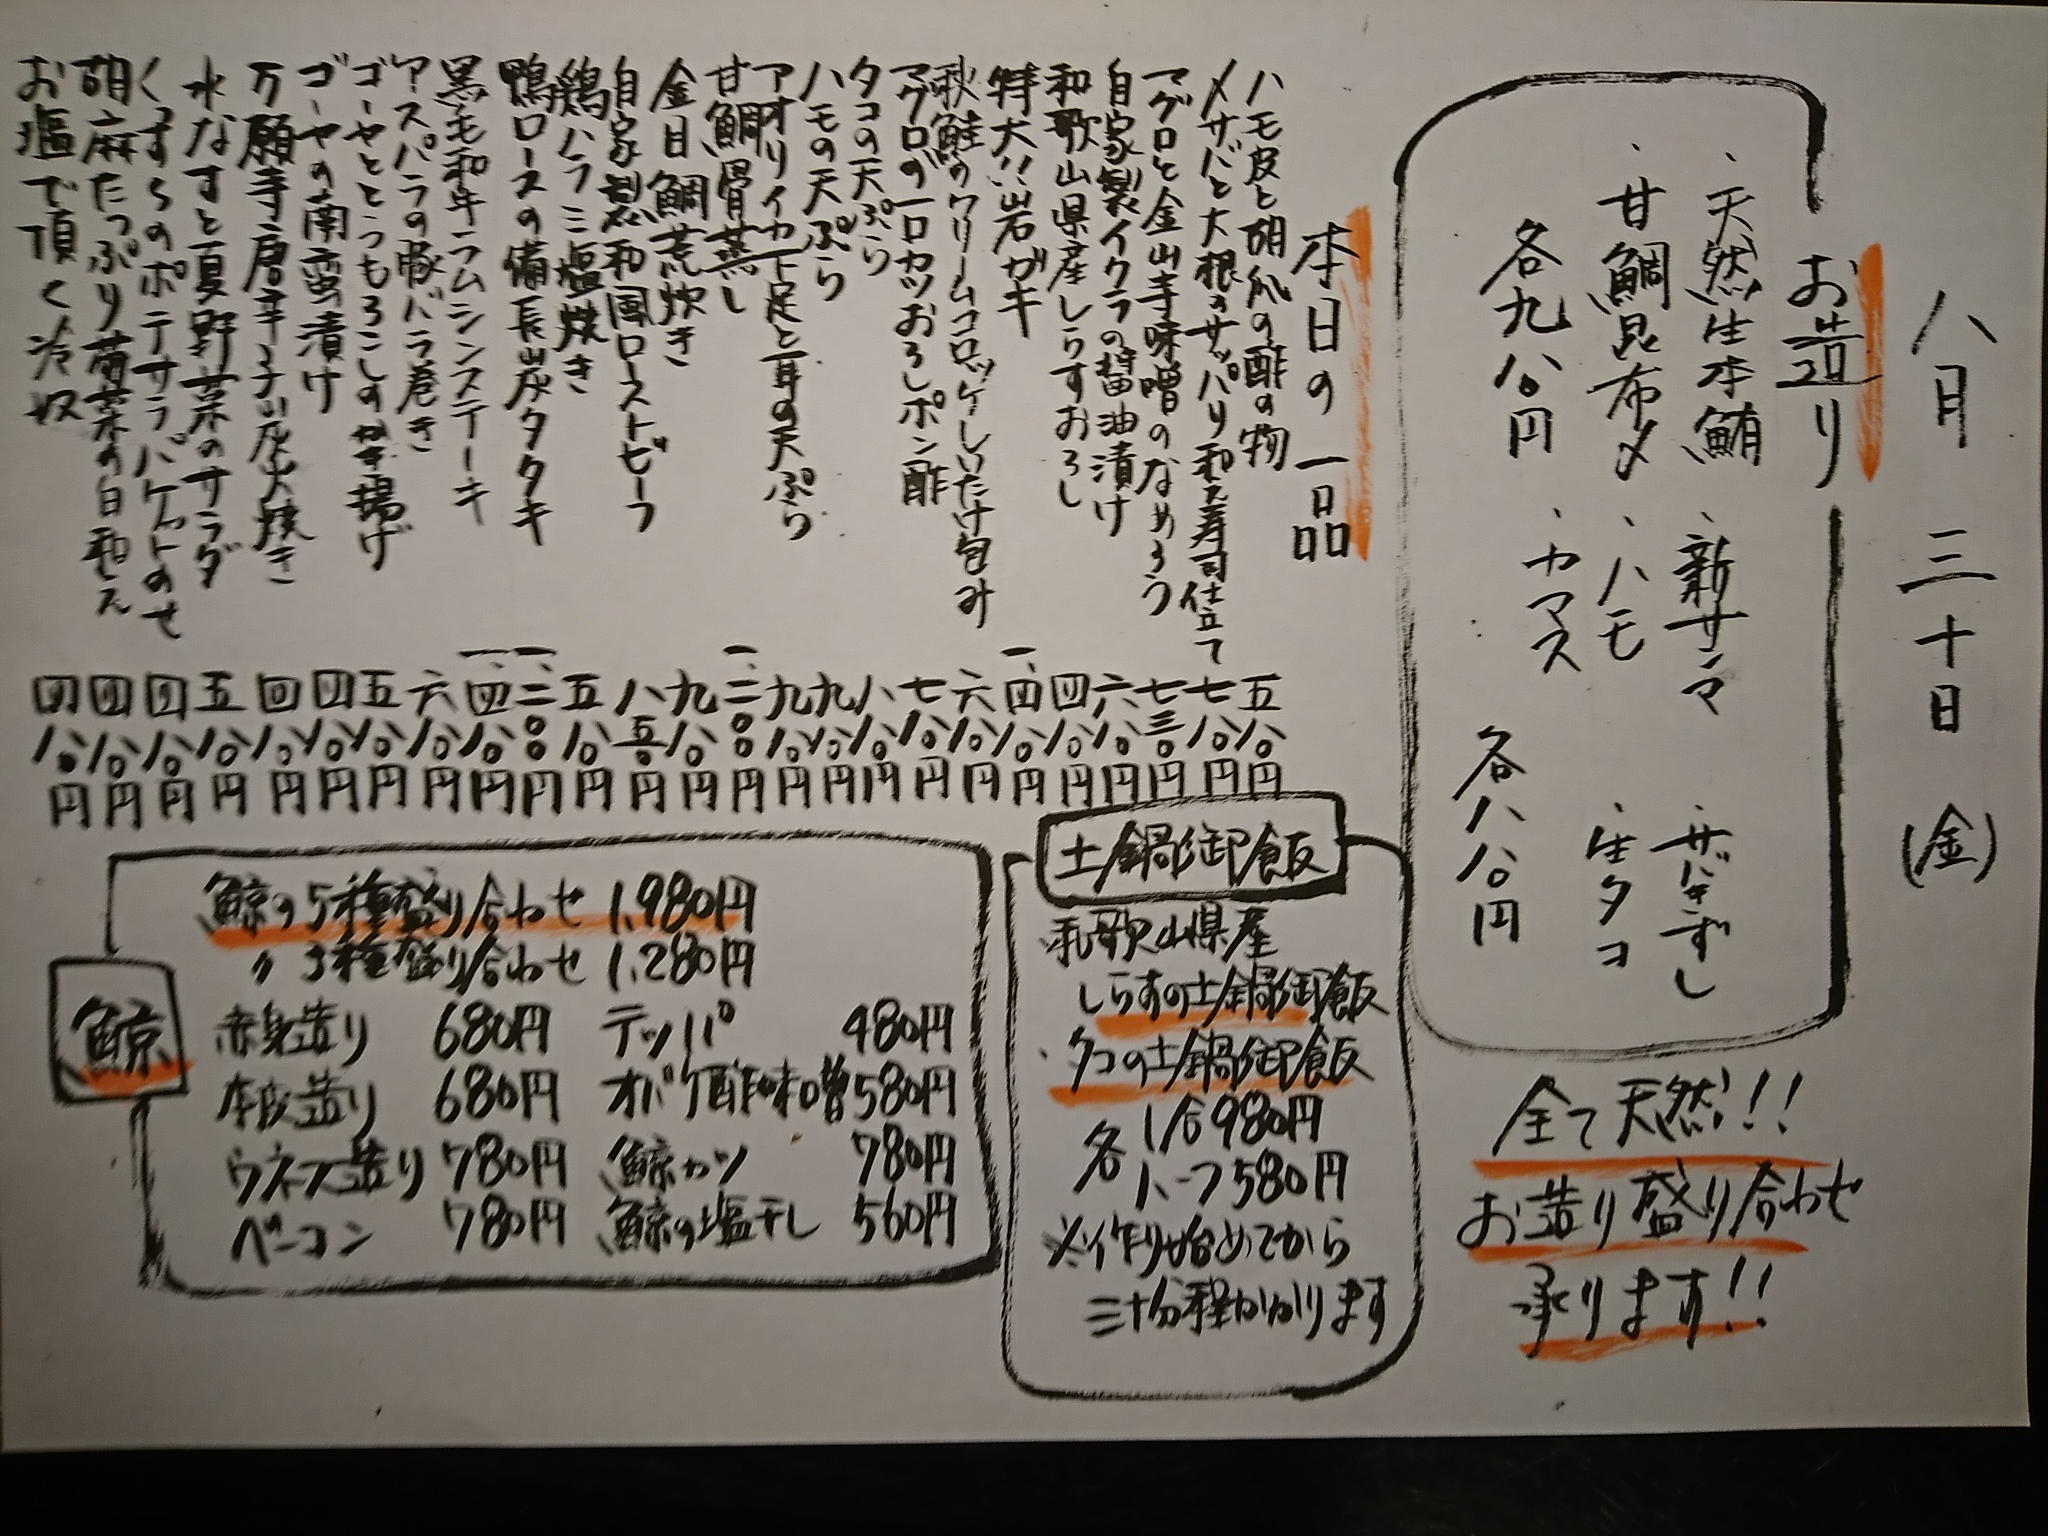 八月三十日(金)
お造り
・天然生本鮪
・甘鯛昆布〆
各九八〇円
・新サンマ
・ハモ
・カマス
・サバきずし
・生タコ
各八八〇円
全て天然!!
お造り盛り合わせ
承ります!!
本日の一品
ハモ皮と胡瓜の酢の物 五八〇円
〆サバと大根のサッパリ和え寿司仕立て 七八〇円
マグロと金山寺味噌のなめろう 七三〇円
自家製イクラの醤油漬け 六八〇円
和歌山県産しらすおろし 四八〇円
特大!!岩ガキ 一、四八〇円
秋鮭のクリームコロッケしいたけ包み 六八〇円
マグロの一口カツおろしポン酢 七八〇円
タコの天ぷら 八八〇円
ハモの天ぷら 九八〇円
アオリイカ下足と耳の天ぷら 九八〇円
甘鯛骨蒸し 一、二〇〇円
金目鯛荒炊き 九八〇円
自家製和風ローストビーフ 八五〇円
鶏ハラミ塩焼き 五八〇円
鴨ロースの備長炭タタキ 一、二〇〇円
黒毛和牛ラムシンステーキ 一、四八〇円
アスパラの豚バラ巻き 六八〇円
ゴーヤととうもろこしのかき揚げ 五八〇円
ゴーヤの南蛮漬け 四八〇円
万願寺唐辛子炭火焼き 四八〇円
水なすと夏野菜のサラダ 五八〇円
くずしのポテサラバケットのせ 四八〇円
胡麻たっぷり菊菜の白和え 四八〇円
お塩で頂く冷奴 四八〇円
土鍋御飯
・和歌山県産
しらすの土鍋御飯
・タコの土鍋御飯
各 1合980円
ハーフ580円
※作り始めてから
三十分程かかります
鯨
鯨の5種盛り合わせ 1,980円
〃3種盛り合わせ 1,280円
赤身造り 680円 テッパ 480円
本皮造り 680円 オバケ酢味噌 580円
ウネス造り 780円 鯨カツ 780円
ベーコン 780円 鯨の塩干し 560円